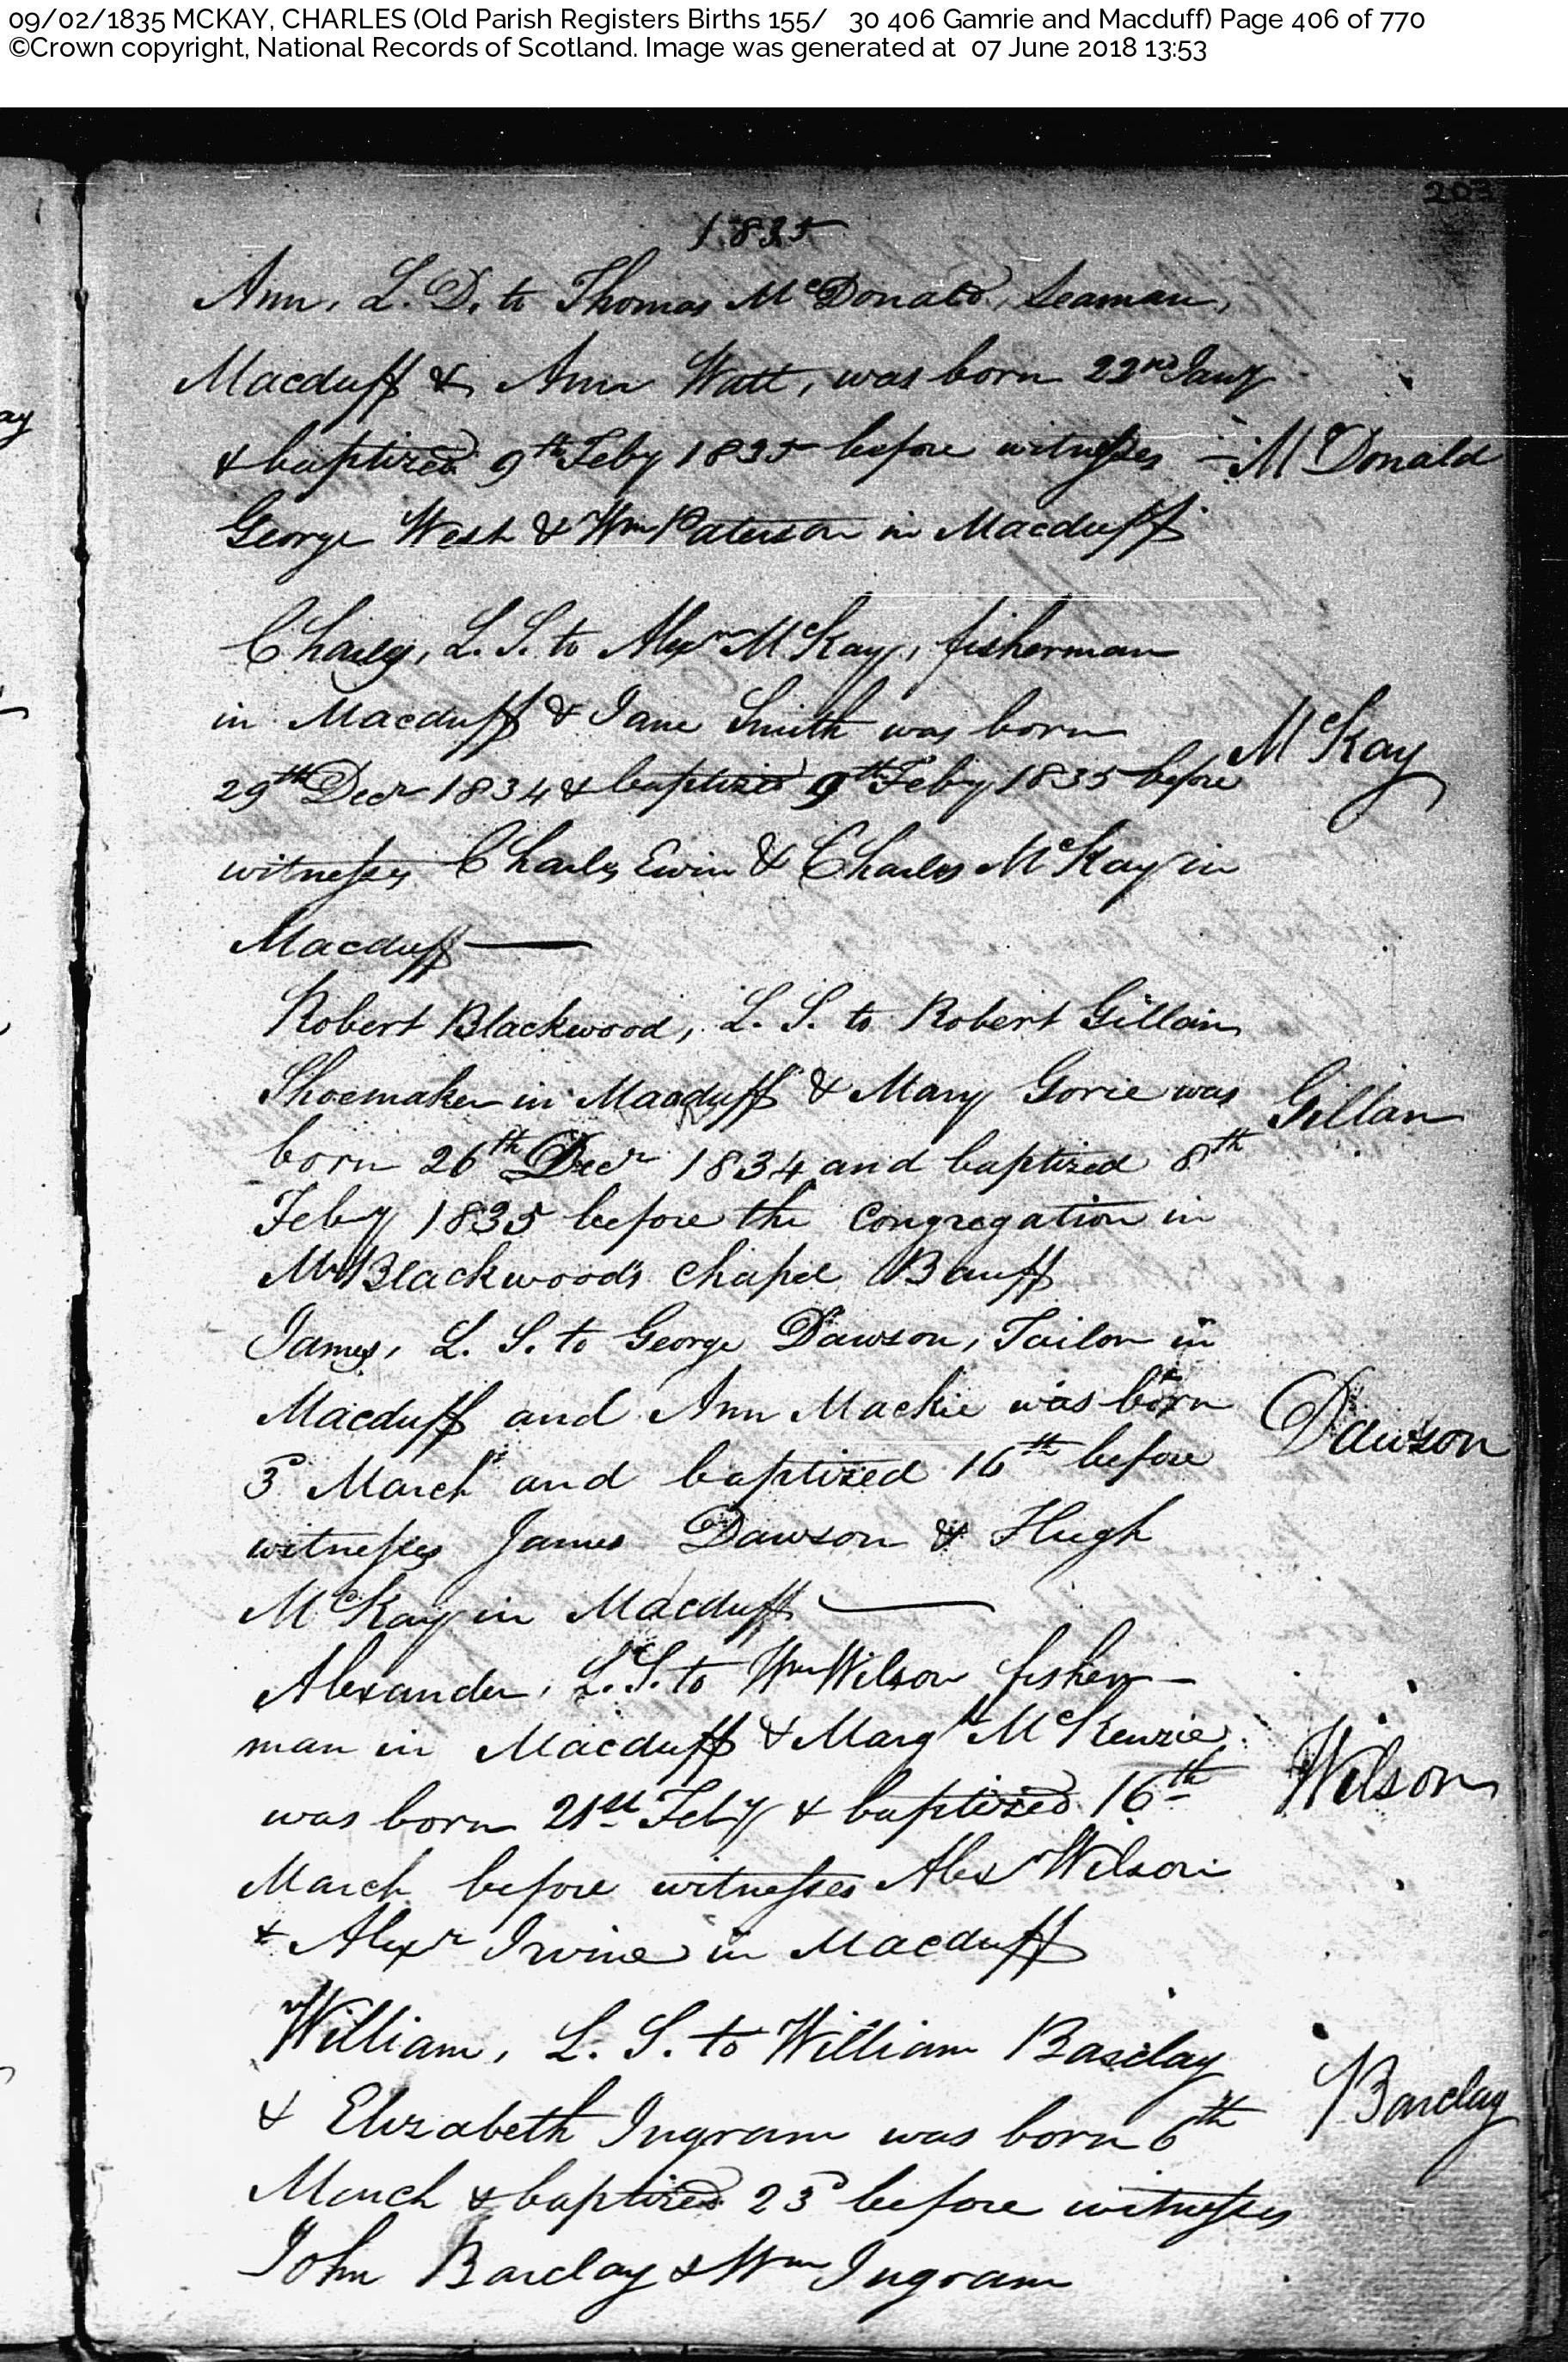 09/02/1835 MCKAY, CHARLES (Old Parish Registers Births 155/ 30 406 Gamrie and Macduff) Page 406 of 770
©Crown copyright, National Records of Scotland. Image was generated at 07 June 2018 13:53
203
1835
Ann, L. D. to Thomas McDonald, Seaman,
Macduff & Ann Watt, was born 22nd Jany
& baptized 9th Feby 1835 before witnesses - McDonald
George West & Wm Paterson in Macduff
Charles, L. S. to Alexr McKay, fisherman
in Macduff & Jane Smith was born
McKay
29th Decr 1834 & baptized 9th Feby 1835 before
witnesses Charles Ewin & Charles McKay in
Macduff
Robert Blackwood, L. S. to Robert Gillan
Shoemaker in Macduff & Mary Gorie was Gillan
born 26th Decr 1834 and baptized 8th
Feby 1835 before the congregation in
Mr Blackwood's chapel Banff
James, L. S. to George Dawson, Tailor in
Macduff and Ann Mackie was born Dawson
3d March and baptized 16th before
witnesses James Dawson & Hugh
McKay in Macduff
Alexander, L. S. to Wm Wilson fisher-
man in Macduff & Margt McKenzie
Wilson
was born 21st Feby & baptized 16th
March before witnesses Alexr Wilson
& Alexr Irvine in Macduff
William, L. S. to William Barclay
Barclay
& Elizabeth Ingram was born 6th
March & baptized 23d before witnesses
John Barclay & Wm Ingram